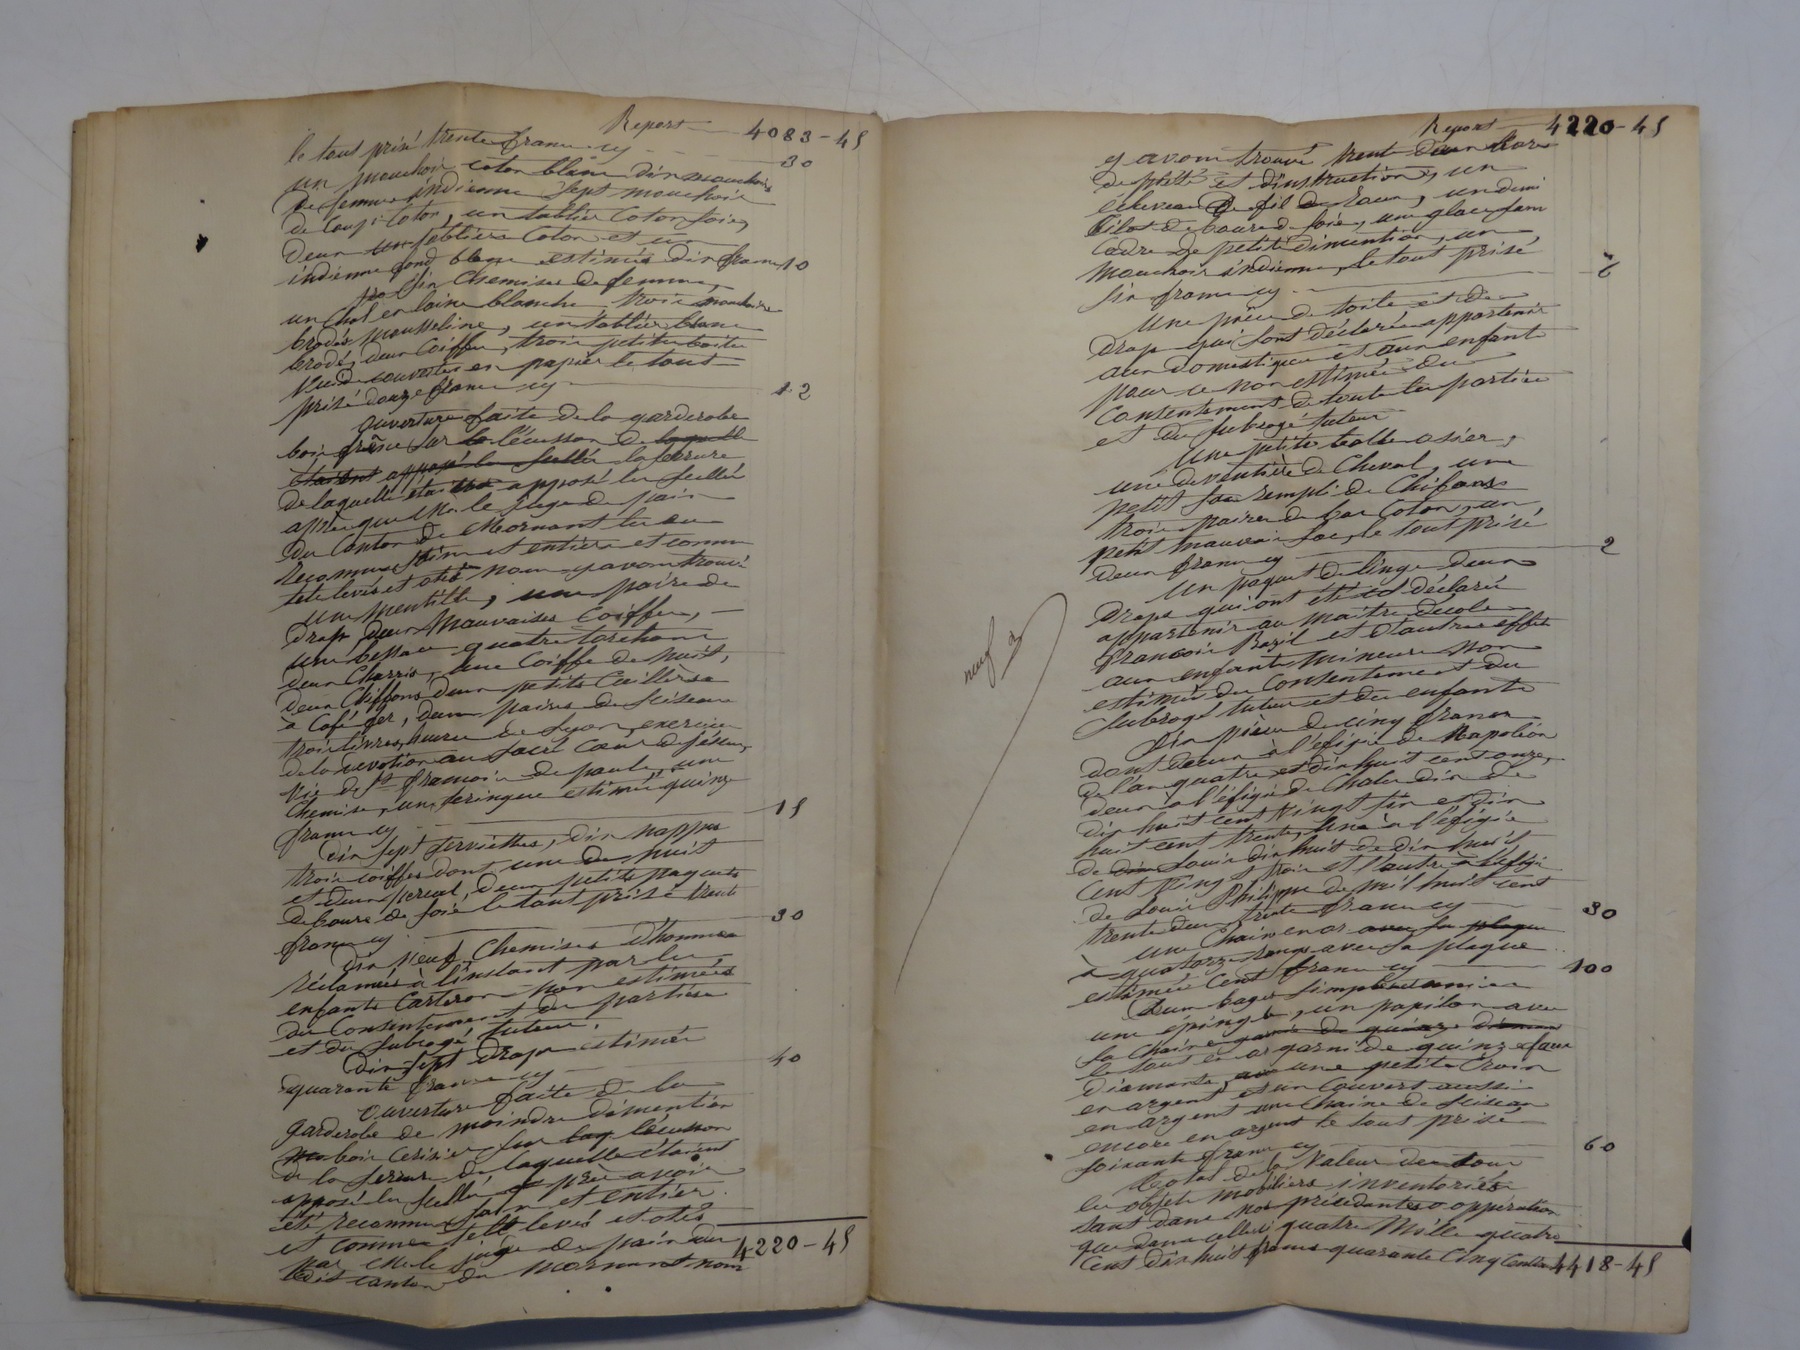 Report 4083-45
le tout prisé trente francs cy 30
un mouchoir coton blanc dix mouchoirs
de femme indienne sept mouchoirs
de coup coton, un tablier coton soie,
deux tabliers coton et un
indienne fond bleu estimés dix francs 10
six chemises de femme,
un chal en laine blanche trois mouchoirs
brodés mousseline, un tablier blanc
brodé, deux coiffes, trois petites boites
vuide couvertes en papier le tout
prisé douze francs cy 12
ouverture faite de la garderobe
bois frêne sur la l'écusson de laquelle
étaient apposé les scellés la serrure
de laquelle étaient apposé les scellés
après que Mr. le juge de paix
du Canton de Mornant les eu
reconnus sains et entiers et comme
tels levés et otés nous y avons trouvé
une mentille, une paire de
drap deux mauvaises coiffes,
une besace quatre torchons
deux charris, une coiffe de nuit,
deux chiffons deux petites cuillères
à café fer, deux paires de sciseaux
trois livres, heures de Lyon, exercice
de la devotion au sacré Cœur de Jésus,
vie de St. francois de paule, une
chemise, une seringue estimée quinze
francs cy 15
dix sept serviettes, dix nappes
trois coiffes dont une de nuit
et deux percal, deux petits paquets
de boure de soie le tout prisé trente
francs cy 30
dix neuf chemises d'hommes
réclamées à l'instant par les
enfants Carteron non estimées
du Consentement des parties
et du subrogé tuteur.
dix sept draps estimés
quarante francs cy 40
ouverture faite de la
garderobe de moindre dimention
bois cerisier sur lecusson
de la serrure de laquelle étaient
apposé les scellés après avoir
été reconnus sains et entiers
et comme tels levés et otés
par Mr le juge de paix du
dit canton de Mornant nous
4220-45
Report 4220-45
y avons trouvé trente deux livres
de piété et d'instruction, un
écheveau de fil de Rouen, un demi
kilot de boure de soie, une glace sans
cadre de petite dimention, un
mouchoir indienne, le tout prisé
six francs cy 6
Une pièce de toile et des
draps qui sont déclarés appartenir
aux domestiques et aux enfants
pour ce non estimés du
Consentement de toutes les parties
et du subrogé tuteur
Une petite balle osier,
une deventière de Cheval, une
petit sac rempli de Chifons
trois paires de bas Coton, un,
petit mauvais sac, le tout prisé
deux francs cy 2
Un paquet de linge deux
draps qui ont été déclarés
appartenir au maître decole
francois Bazil et d'autres effets
aux enfants mineurs non
estimés du Consentement du
subrogé tuteur et des enfants
neuf
Six pièces de cinq francs
dont deux à l'éfigie de Napoléon
de l'an quatre et dix huit cent onze,
deux à l'éfigie de Charles dix de
dix huit cent vingt six et dix
huit cent trente, une à l'éfigie
de Louis dix huit de dix huit
cent vingt trois et l'autre à l'éfigie
de Louis Philippe de mil huit cent
trente deux trente francs cy 30
une chaine en or avec sa plaque
à quatorze rangs avec sa plaque
estimée cent francs cy 100
Deux bagues simples unies
une epingle, un papilon avec
sa chaine garnie de quinze diamans
le tout en or garni de quinze faux
diamants, une petite Croix
en argent et un Couvert aussi
en argent une chaine de sciseau
encore en argent le tout prisé
soixante francs cy 60
Total de la valeur de tous
les objets mobiliers inventoriés
tant dans nos précédantes oppérations
que dans celleci quatre mille quatre
cent dix huit francs quarante cinq centimes 4418-45